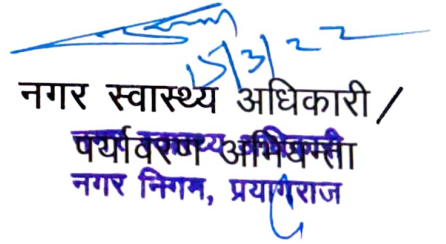 15/3/22
नगर स्वास्थ्य अधिकारी /
पर्यावरण अभियन्ता
नगर स्वास्थ्य अधिकारी
नगर निगम, प्रयागराज